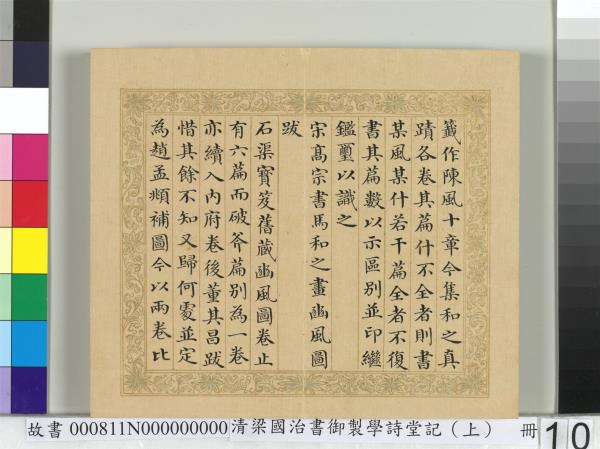 籤作陳風十章今集和之真
蹟各卷其篇什不全者則書
某風某什若干篇全者不復
書其篇數以示區別並印繼
鑑璽以識之
宋高宗書馬和之畫豳風圖
跋
石渠寶笈舊藏豳風圖卷止
有六篇而破斧篇別為一卷
亦續入內府卷後董其昌跋
惜其餘不知又歸何處並定
為趙孟頫補圖今以兩卷比
故書 000811N000000000 清梁國治書御製學詩堂記（上） 冊 10